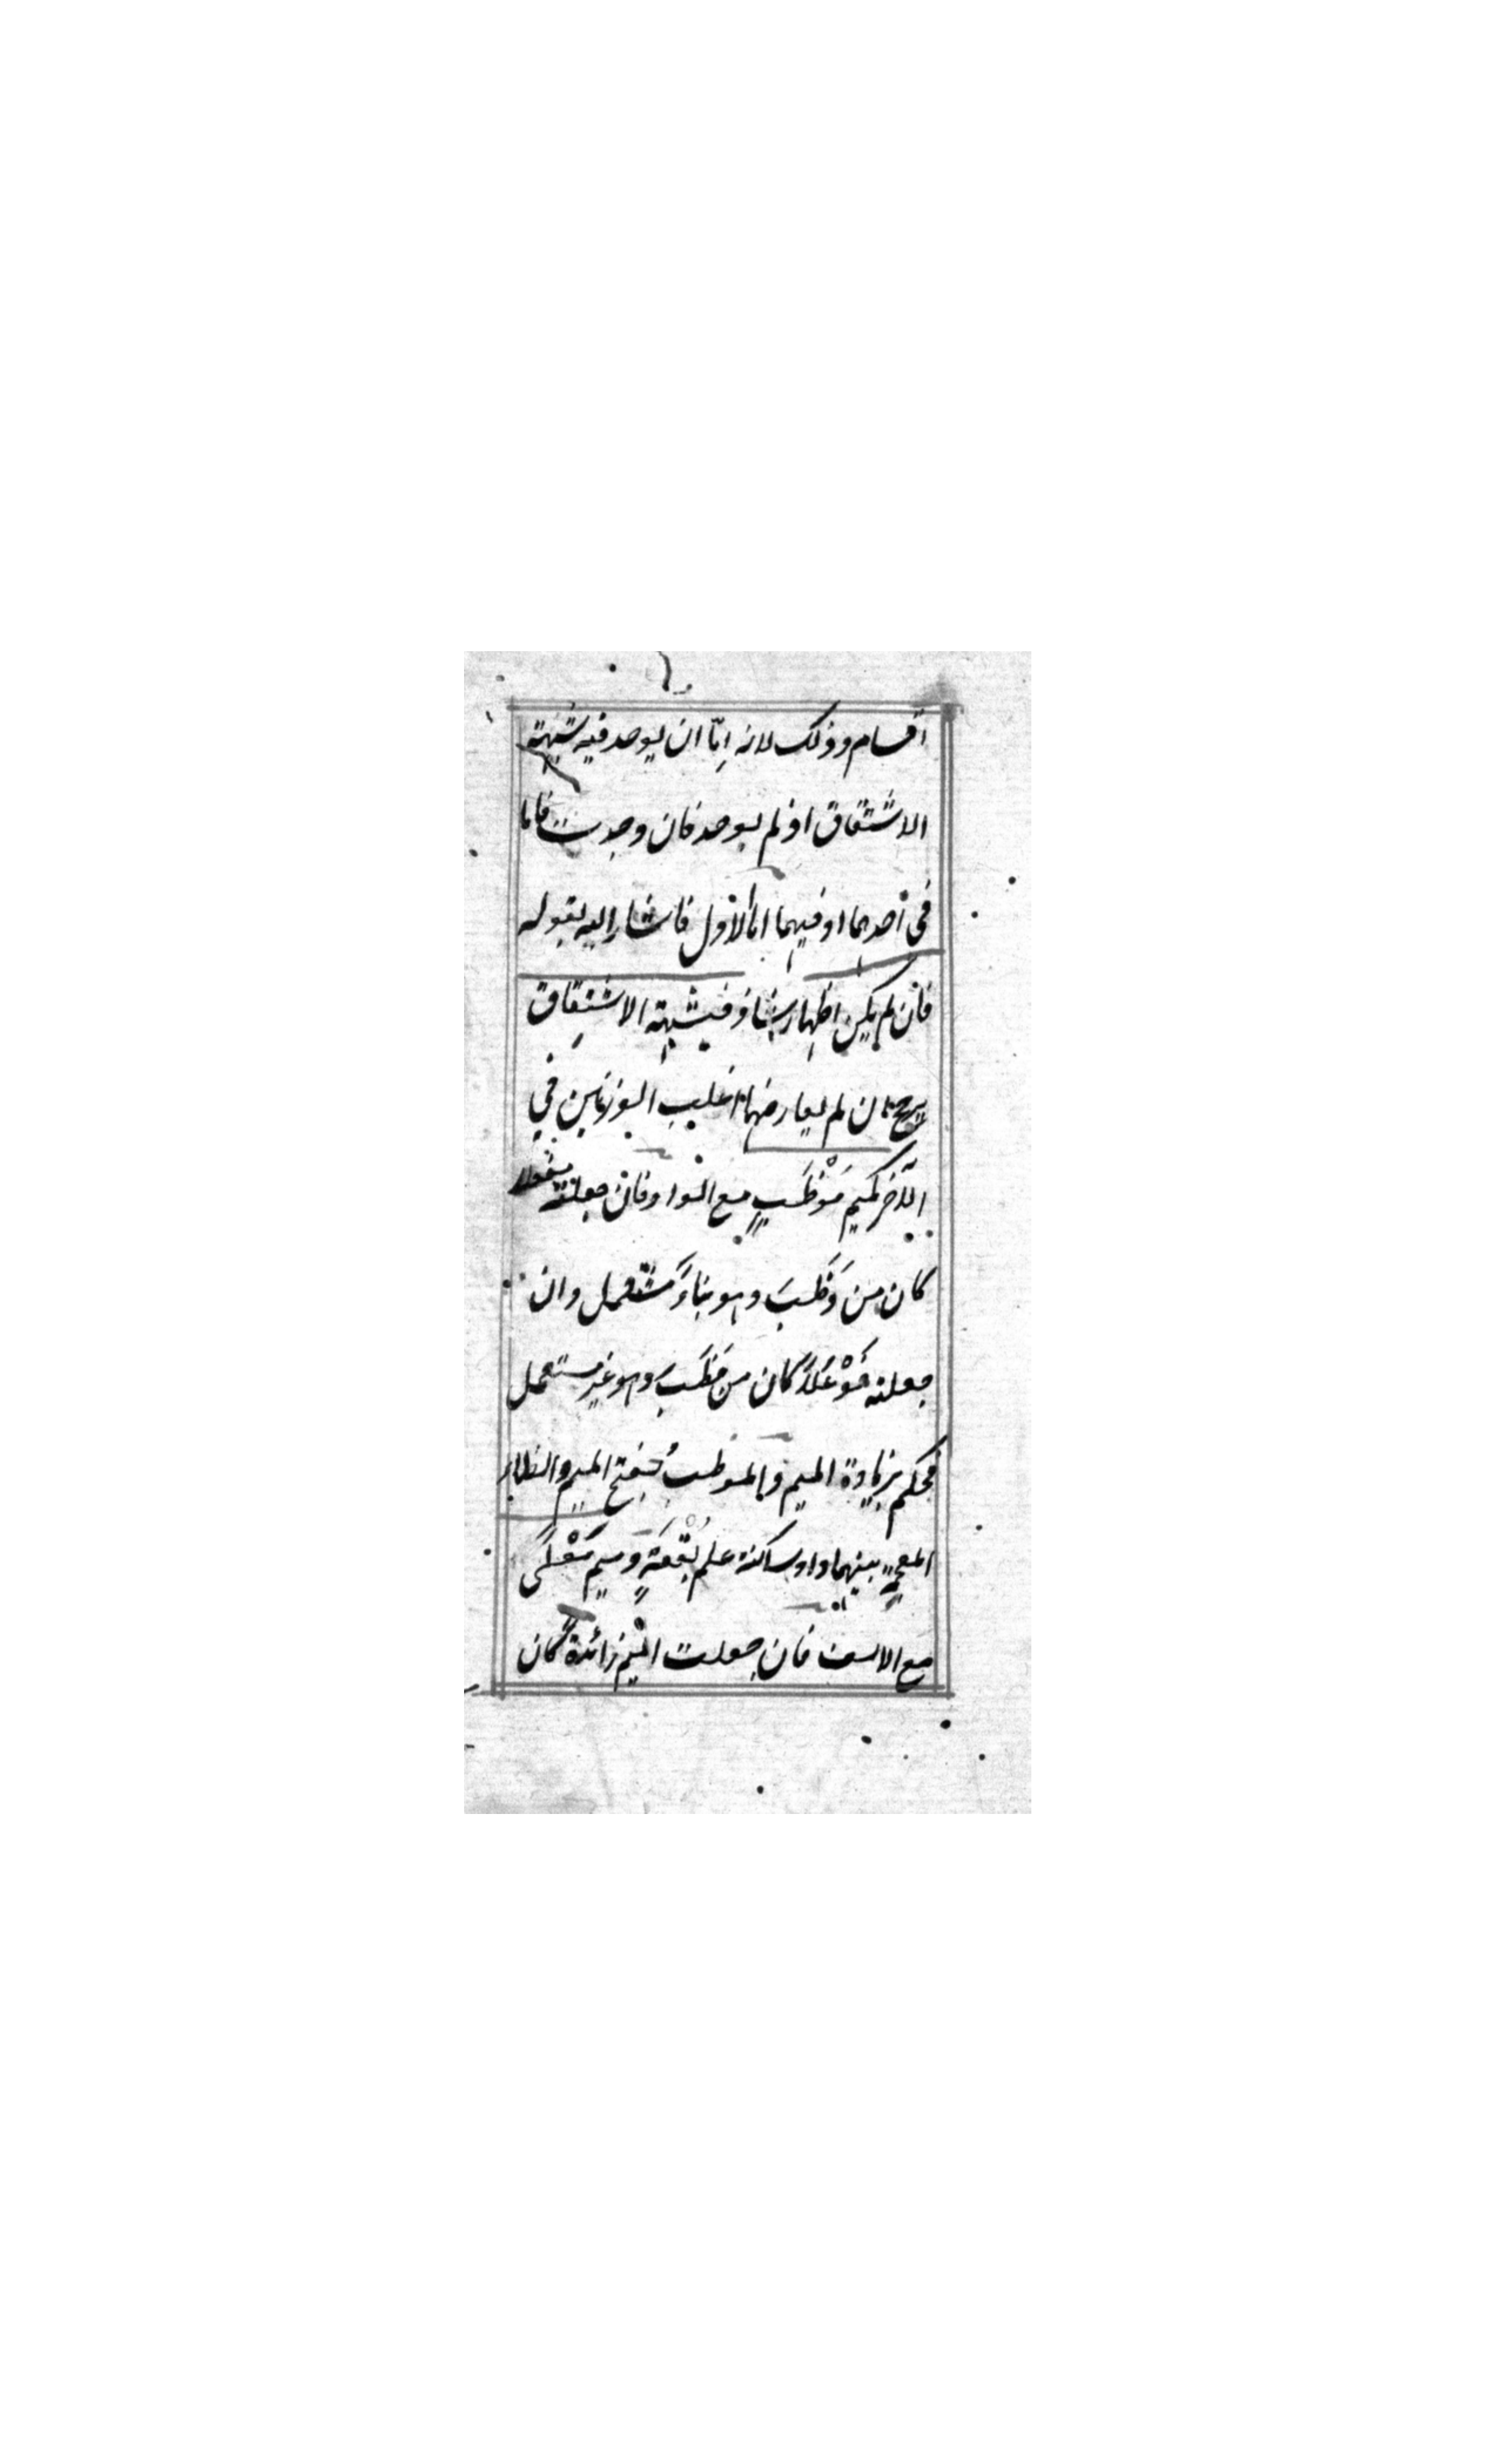 اقسام وذلك لانه امّا ان يوجد فيه شبهة
الاشتقاق او لم يوجد فان وجدت فاما
في احدهما او فيهما امّا الاول فاشار اليه بقوله
فان لم يكن اظهار شاذ فبشبهة الاشتقاق
يرجح ان لم يعارضها اغلب الوزنين في
الآخر كميم مَوْظَبٍ مع الواو فان جعلته مفعلا
كان من وَظَبَ وهو بناءٌ مستعمل وان
جعلته فَوْعَلاً كان من مَظَبَ وهو غير مستعمل
فحكم بزيادة الميم والموظب بفتح الميم والظاء
المعجمة بينهما واو ساكنة علم بُقْعَةٍ وميم مَعْلًى
مع الالف فان جعلت الميم زائدة كان